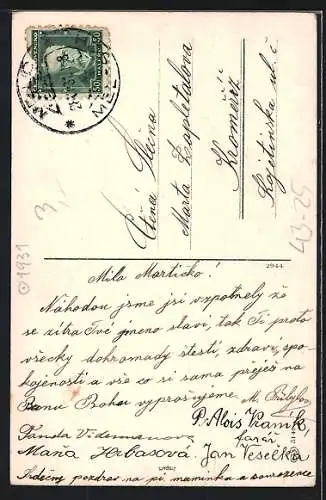 50
Ctěná Slečna
Marta Zapletalova
Kroměříž
Kojetinska ul. č
3,-
1931
43-25
2944
Milá Martičko!
Náhodou jsme jsi vzpotnely že
se zítra Tvé jmeno slaví, tak Ti proto
všecky dohromady štestí, zdraví, spo-
kojenosti a vše co si sama přeješ na
Panu Bohu vyprošujeme. M.
P. Alois Kraník,
farář
Fanda Videmanova
Maria Jan Veselka
Srdečný pozdrav na pí. maminku a sourozence